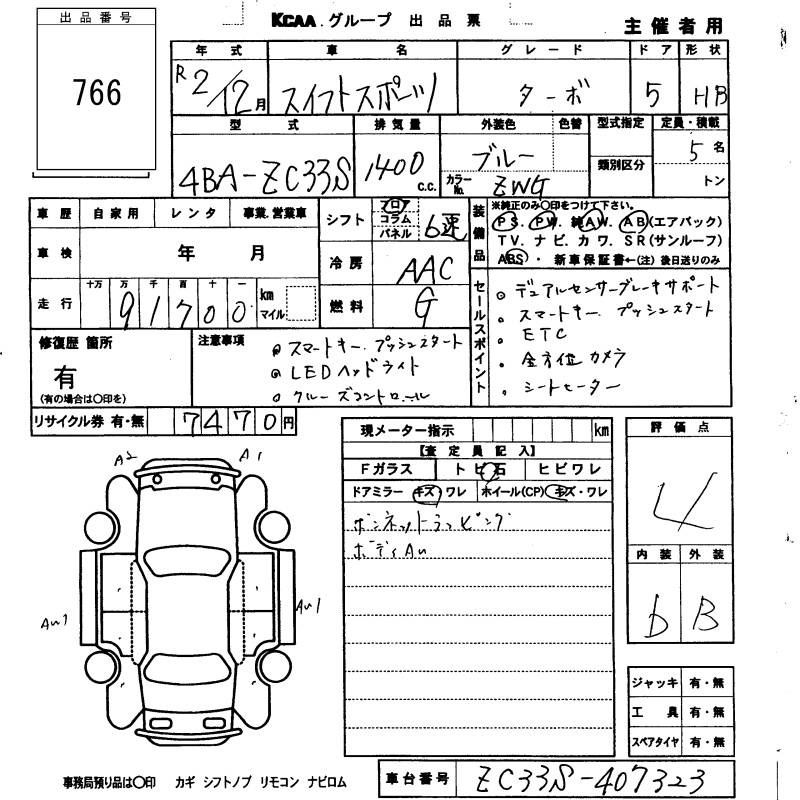 出品番号
766
KCAA.グループ 出品票
主催者用
年式 車名 グレード ドア 形状
R2/12月 スイフトスポーツ ターボ 5 HB
型式 排気量 外装色 色替 型式指定 定員・積載
4BA-ZC33S 1400c.c. ブルー 類別区分 5名
カラーNo. ZWG トン
車歴 自家用 レンタ 事業.営業車
車検 年 月
走行 十万 万 千 百 十 一
91700 km マイル
シフト フロア コラム パネル 6速
冷房 AAC
燃料 G
装備品
※純正のみ○印をつけて下さい。
PS. PW. 純AW. AB(エアバック)
TV. ナビ. カワ. SR(サンルーフ)
ABS・ 新車保証書←(注) 後日送りのみ
セールスポイント
○デュアルセンサーブレーキサポート
○スマートキー.プッシュスタート
・ETC
・全方位カメラ
・シートヒーター
修復歴 箇所
有
(有の場合は○印を)
注意事項
○スマートキー.プッシュスタート
○LEDヘッドライト
○クルーズコントロール
リサイクル券 有・無 7470円
現メーター指示 km
【査定員記入】
Fガラス トビ石 ヒビワレ
ドアミラー キズ・ワレ ホイール(CP) キズ・ワレ
ボンネットラッピング
ボディAu
評価点
4
内装 外装
b B
A2 A1
Au1 Au1
ジャッキ 有・無
工具 有・無
スペアタイヤ 有・無
事務局預り品は○印 カギ シフトノブ リモコン ナビロム
車台番号 ZC33S-407323